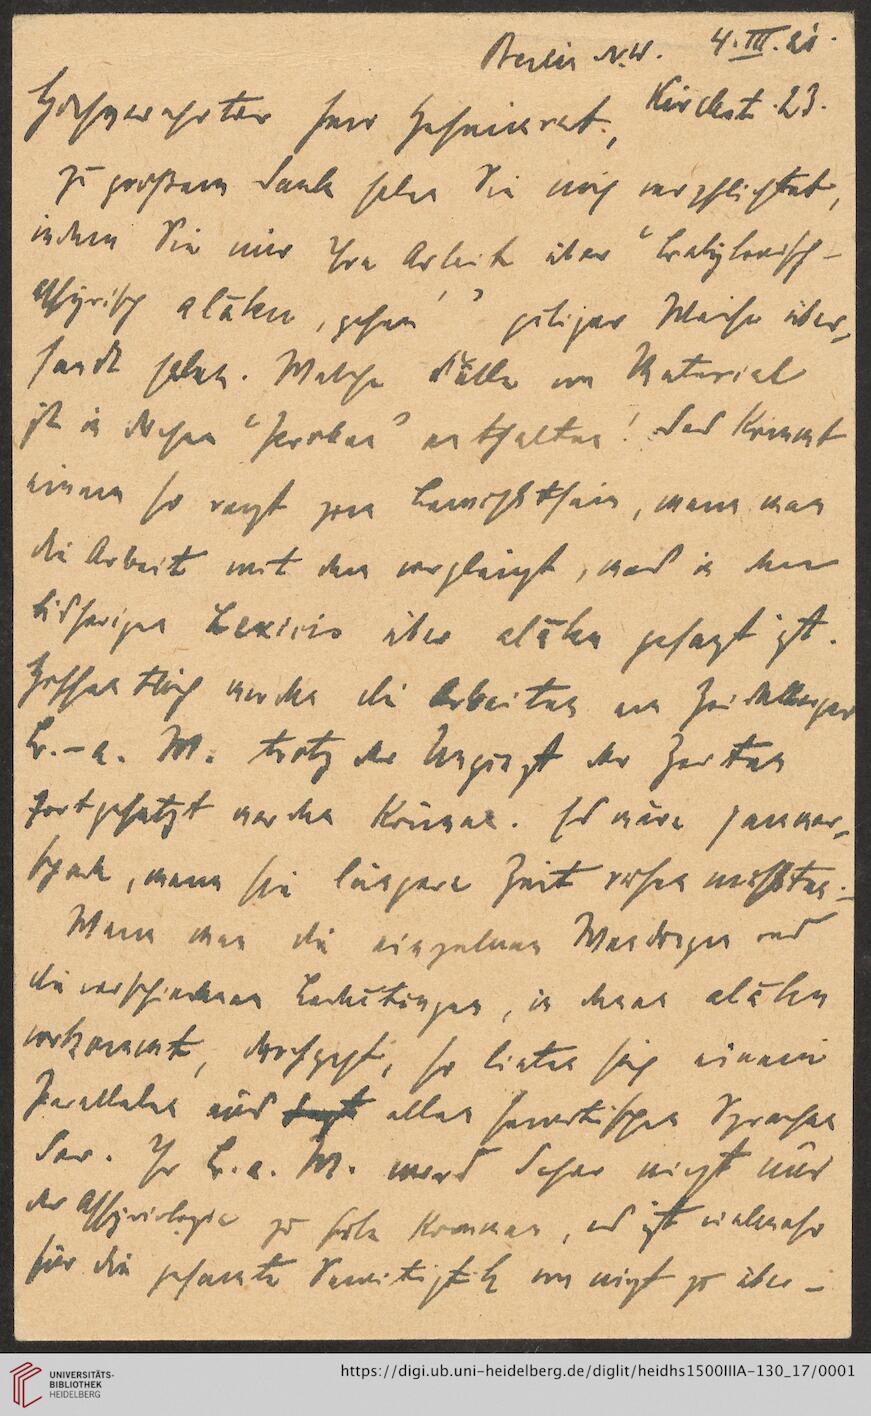 Berlin N.W. 4.III.21.
Kirchstr. 23.
Hochgeehrter Herr Geheimrat,
Zu großem Dank haben Sie mich verpflichtet,
indem Sie mir Ihre Arbeit über "Babylonisch-
assyrisch alāku, gehen'" gütiger Weise über-
sandt haben. Welche Fülle von Material
ist in diesen "Proben" enthalten! Das kommt
einem so recht zum Bewußtsein, wenn man
die Arbeit mit dem vergleicht, was in den
bisherigen Lexicis über alāku gesagt ist.
Hoffentlich werden die Arbeiten am Heidelberger
B.-a. W. trotz der Ungunst der Zeiten
fortgesetzt werden können. Es wäre jammer-
schade, wenn sie längere Zeit ruhen müßten.–
Wenn man die einzelnen Wendungen und
die verschiedenen Bedeutungen, in denen alāku
vorkommt, durchgeht, so bieten sich einem
Parallelen aus allen semitischen Sprachen
dar. Ihr B.a. W. wird daher nicht nur
der Assyriologie zu gute kommen, es ist vielmehr
für die gesamte Semitistik von nicht zu über-
UNIVERSITÄTS-
BIBLIOTHEK
HEIDELBERG
https://digi.ub.uni-heidelberg.de/diglit/heidhs1500IIIA-130_17/0001